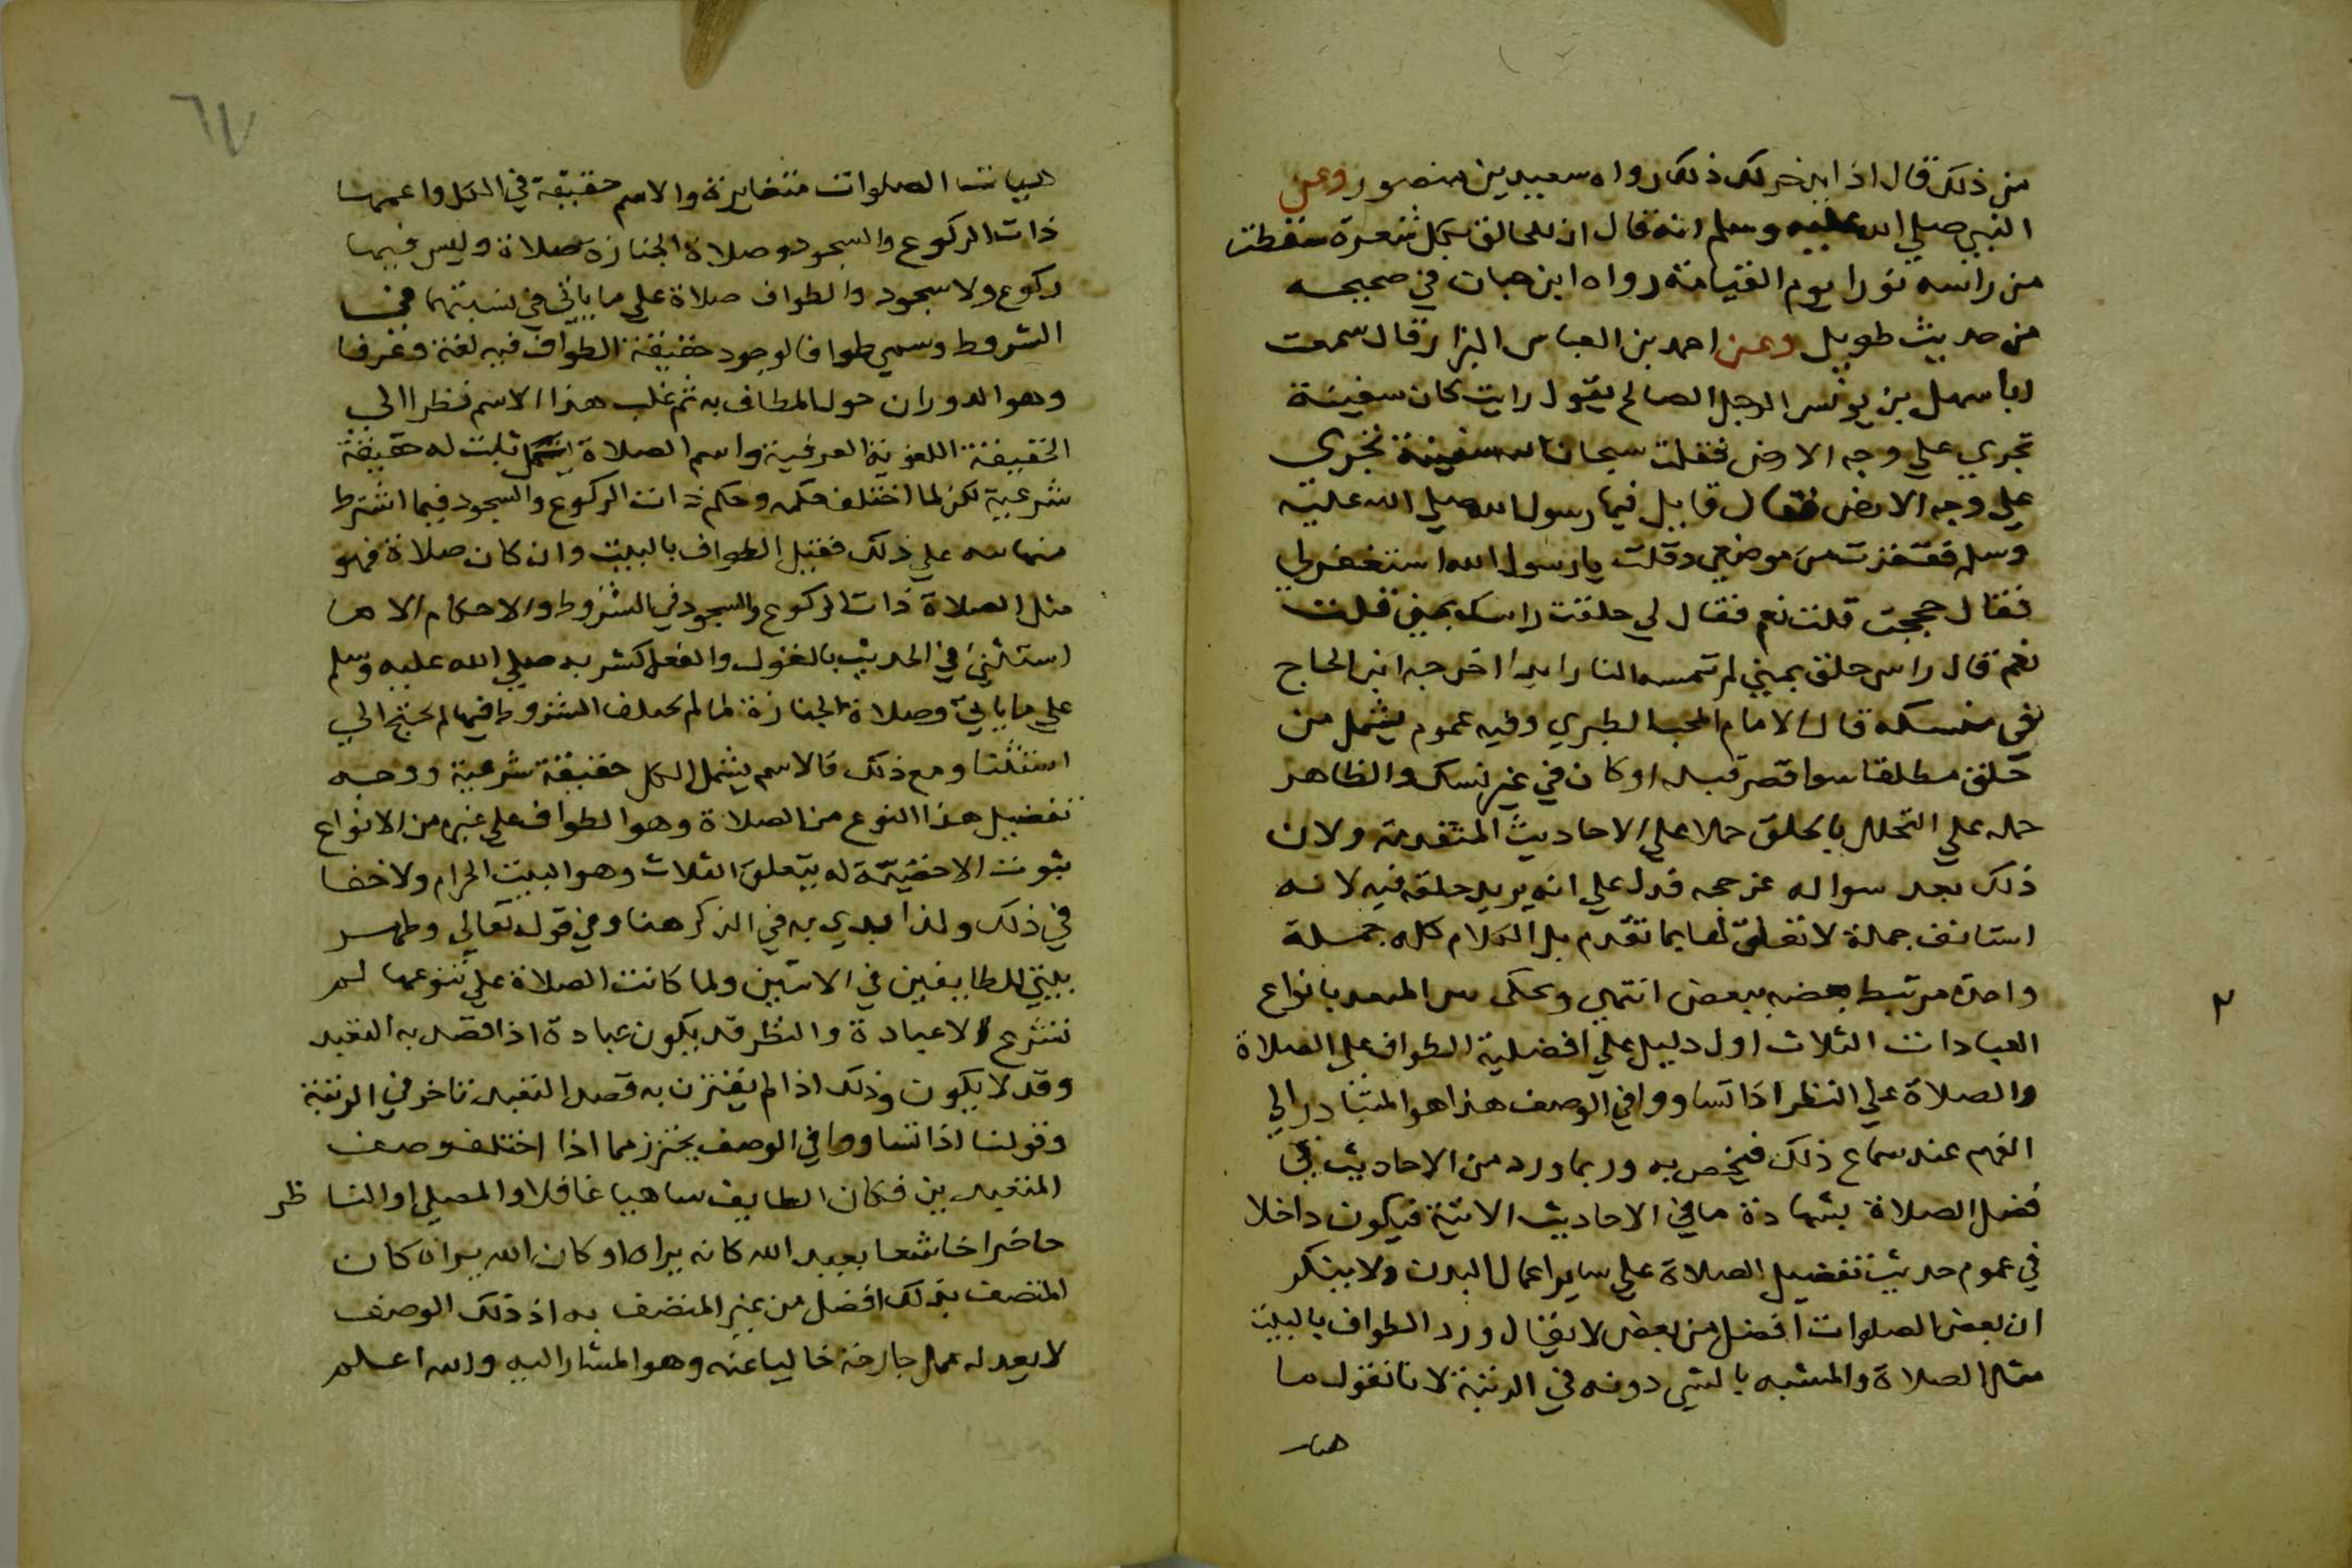 من ذلك قال اذا يدخر لك ذلك رواه سعيد بن منصور وعن
النبي صلي الله عليه وسلم انه قال ان للحالق بكل شعرة سقطت
من راسه نورا يوم القيامة رواه ابن حبان في صحيحه
من حديث طويل وعن احمد بن العباس البزار قال سمعت
ابا سهل بن يونس الرجل الصالح يقول رايت كان سفينة
تجري علي وجه الارض فقلت سبحان الله سفينة تجري
علي وجه الارض فقال قايل فيها رسول الله صلي الله عليه
وسلم فقفزت من موضعي وقلت يا رسول الله استغفر لي
فقال حججت قلت نعم فقال لي حلقت راسك بمني قلت
نعم قال راس حلق بمني لم تمسه النار ابدا اخرجه ابن الحاج
في منسكه قال الامام المحب الطبري وفيه عموم يشمل من
حلق مطلقا سوا قصر قبله او كان في غير نسك والظاهر
حمله علي التحلل بالحلق حملا علي الاحاديث المتقدمة ولان
ذلك بعد سواله عن حجه فدل علي انه يريد حلقه فيه لانه
استانف جملة لا تعلق لها بما تقدم بل الكلام كله جملة
واحدة مرتبط بعضه ببعض انتهي
العبادات الثلاث اول دليل علي افضلية الطواف علي الصلاة
والصلاة علي النظر اذا تساووا في الوصف هذا هو المتبادر الي
الفهم عند سماع ذلك فيخص به وربما ورد من الاحاديث في
فضل الصلاة بشهادة ما في الاحاديث الاتية فيكون داخلا
في عموم حديث تفضيل الصلاة علي ساير اعمال البدن ولا ينكر
ان بعض الصلوات افضل من بعض لا يقال ورد الطواف بالبيت
مثل الصلاة والمشبه بالشي دونه في الرتبة لانا نقول ما
٢
٦٧
هيات الصلوات متغايرة والاسم حقيقة في الكل واعمها
ذات الركوع والسجود وصلاة الجنازة صلاة وليس فيها
ركوع ولا سجود والطواف صلاة علي ما ياتي في نسبتهما في
الشروط وسمي طوافا لوجود حقيقة الطواف فيه لغة وعرفا
وهو الدوران حول المطاف به ثم غلب هذا الاسم نظرا الي
الحقيقة اللغوية العرفية واسم الصلاة ثابت له حقيقة
شرعية لكن لما اختلف حكمه وحكم ذات الركوع والسجود فيما اشترط
علي ذلك فقيل الطواف بالبيت وان كان صلاة فهو
مثل الصلاة ذات الركوع والسجود في الشروط والاحكام الا ما
استثني في الحديث بالقول والفعل كشربه صلي الله عليه وسلم
علي ما ياتي وصلاة الجنازة لما لم تختلف الشروط فيها لم يحتج الي
استثنا ومع ذلك فالاسم يشمل الكل حقيقة شرعية ووجه
تفضيل هذا النوع من الصلاة وهو الطواف علي غيره من الانواع
ثبوت الاخصية له بتعلق الثلاث وهو البيت الحرام ولا خفا
في ذلك ولذا بدي به في الذكر هنا وفي قوله تعالي وطهر
بيتي للطايفين في الايتين ولما كانت الصلاة علي تنوعها لم
تشرع الا عبادة والنظر قد يكون عبادة اذا قصد به التعبد
وقد لا يكون وذلك اذا لم يقترن به قصد التعبد تاخر في الرتبة
وقولنا اذا تساووا في الوصف يحترز مما اذا اختلف وصف
المتعبدين فكان الطايف ساهيا غافلا والمصلي او الناظر
حاضرا خاشعا يعبد الله كانه يراه او كان الله يراه كان
المتصف بذلك افضل من غير المتصف به اذ ذلك الوصف
لا يعدله عمل جارحة خاليا عنه وهو المشار اليه والله اعلم